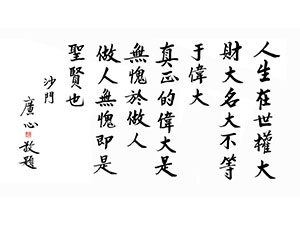 人生在世權大
財大名大不等
于偉大
真正的偉大是
無愧於做人
做人無愧即是
聖賢也
沙門
廣心敬題